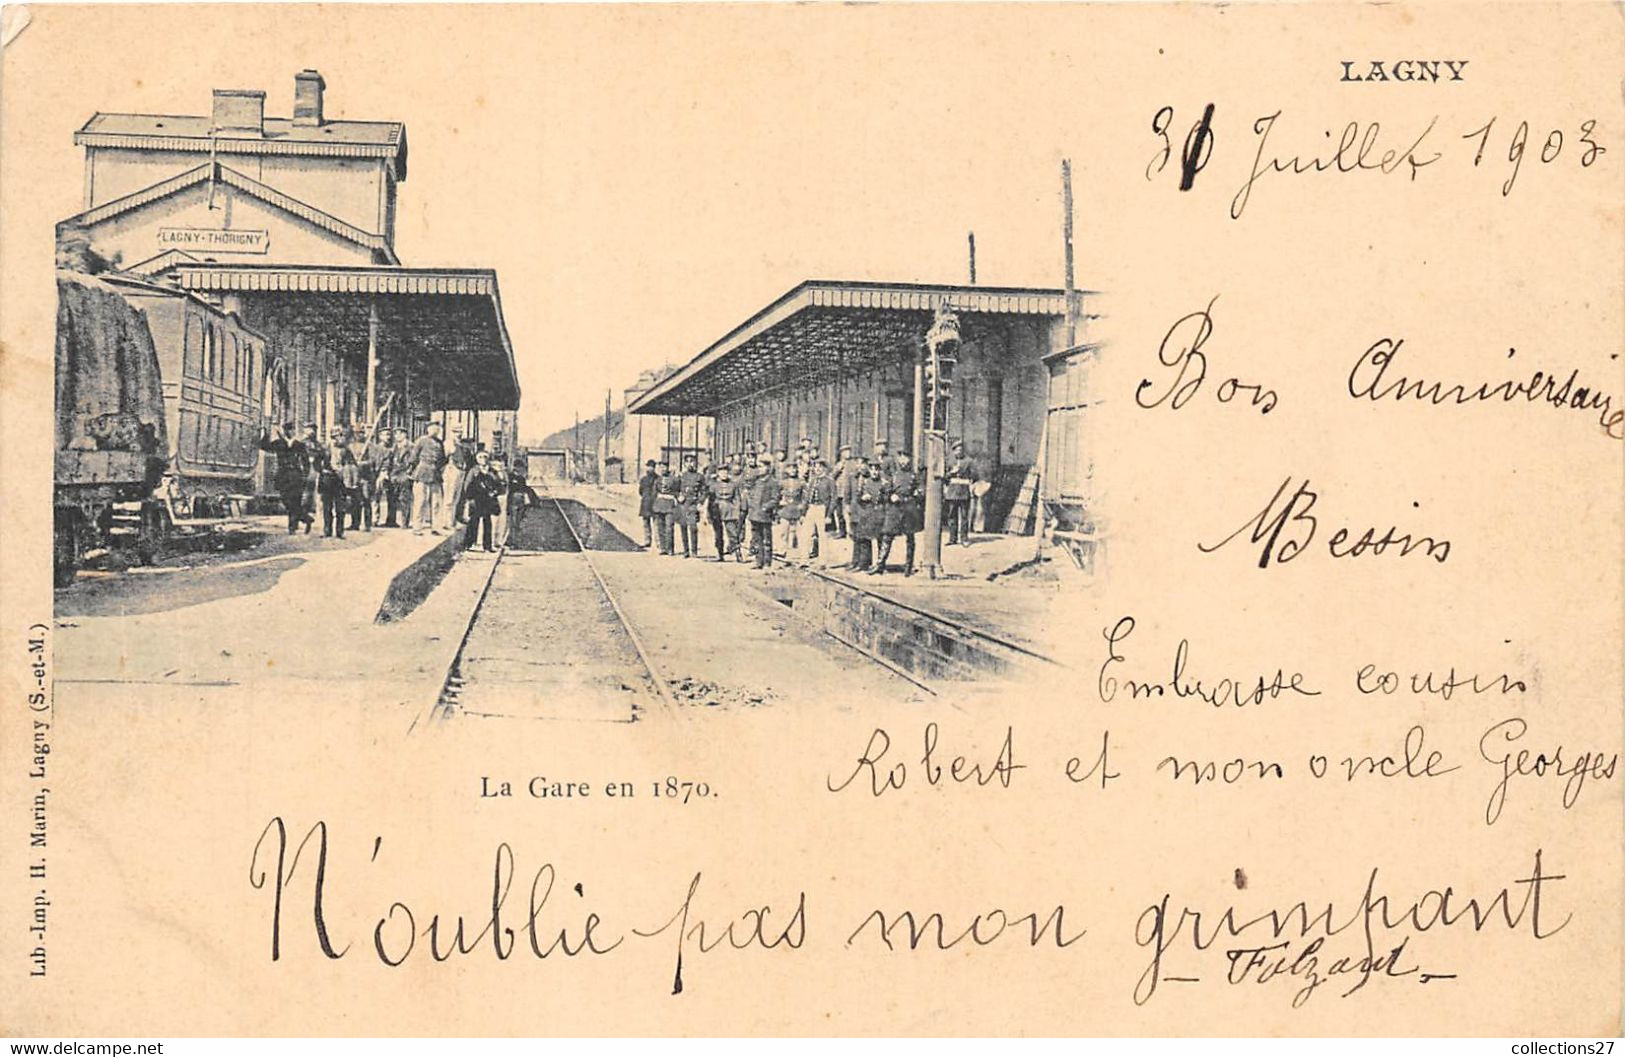 LAGNY
31 Juillet 1903
LAGNY-THORIGNY
Bon Anniversaire
MBessin
Embrasse cousin
Robert et mon oncle Georges
La Gare en 1870.
N'oublie pas mon grimpant
Lib.-Imp. H. Marin, Lagny (S.-et-M.)
collections27